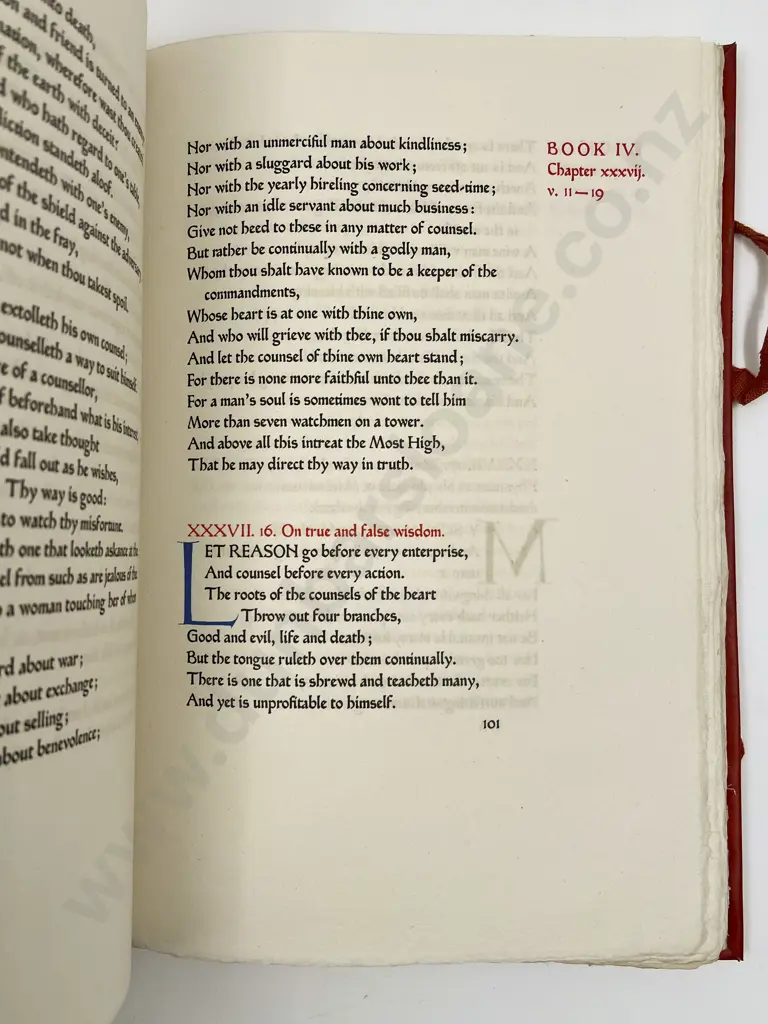 to death,
on and friend is turned to an enemy
nation, wherefore wast thou created
f the earth with deceit?
d who hath regard to one's table,
liction standeth aloof.
ontendeth with one's enemy,
of the shield against the adversary
d in the fray,
not when thou takest spoil.
extolleth his own counsel;
ounselleth a way to suit himself.
e of a counsellor,
f beforehand what is his interest
also take thought
d fall out as he wishes,
Thy way is good:
to watch thy misfortune.
th one that looketh askance at thee
el from such as are jealous of thee
o a woman touching her of whom
rd about war;
about exchange;
out selling;
about benevolence;
Nor with an unmerciful man about kindliness;
Nor with a sluggard about his work;
Nor with the yearly hireling concerning seed-time;
Nor with an idle servant about much business:
Give not heed to these in any matter of counsel.
But rather be continually with a godly man,
Whom thou shalt have known to be a keeper of the
commandments,
Whose heart is at one with thine own,
And who will grieve with thee, if thou shalt miscarry.
And let the counsel of thine own heart stand;
For there is none more faithful unto thee than it.
For a man's soul is sometimes wont to tell him
More than seven watchmen on a tower.
And above all this intreat the Most High,
That he may direct thy way in truth.
XXXVII. 16. On true and false wisdom.
LET REASON go before every enterprise,
And counsel before every action.
The roots of the counsels of the heart
Throw out four branches,
Good and evil, life and death;
But the tongue ruleth over them continually.
There is one that is shrewd and teacheth many,
And yet is unprofitable to himself.
101
BOOK IV.
Chapter xxxvij.
v. 11—19